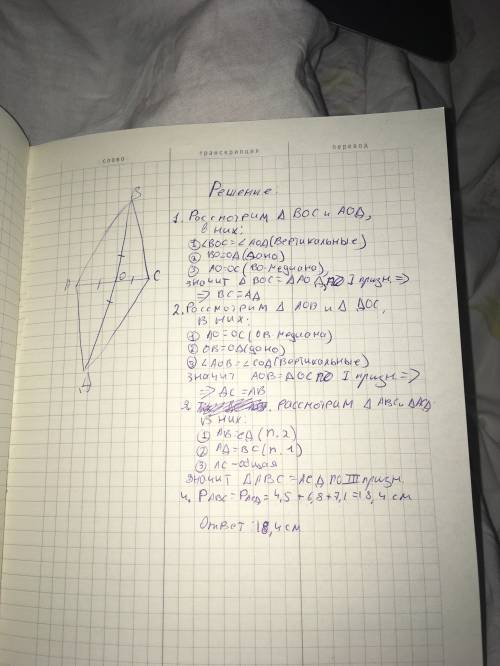 слово транскрипция перевод
Решение.
1. Рассмотрим Δ BOC и AOД,
в них:
① ∠BOC = ∠AOД (Вертикальные)
② BO = OД (Дано)
③ AO = OC (BO-медиана)
значит Δ BOC = Δ AOД по I призн. =>
=> BC = AД
2. Рассмотрим Δ AOB и Δ ДOC,
В них:
① AO = OC (OB-медиана)
② OB = OД (дано)
③ ∠AOB = ∠COД (Вертикальные)
значит AOB = ДOC по I призн. =>
=> ДC = AB
3. Рассмотрим Δ ABC и Δ ACД
В них:
① AB = CД (п. 2)
② AД = BC (п. 1)
③ AC - общая
значит Δ ABC = ACД по III призн.
4. P ABC = P ACД = 4,5 + 6,8 + 7,1 = 18,4 см
Ответ: 18,4 см
B
A
O
C
Д